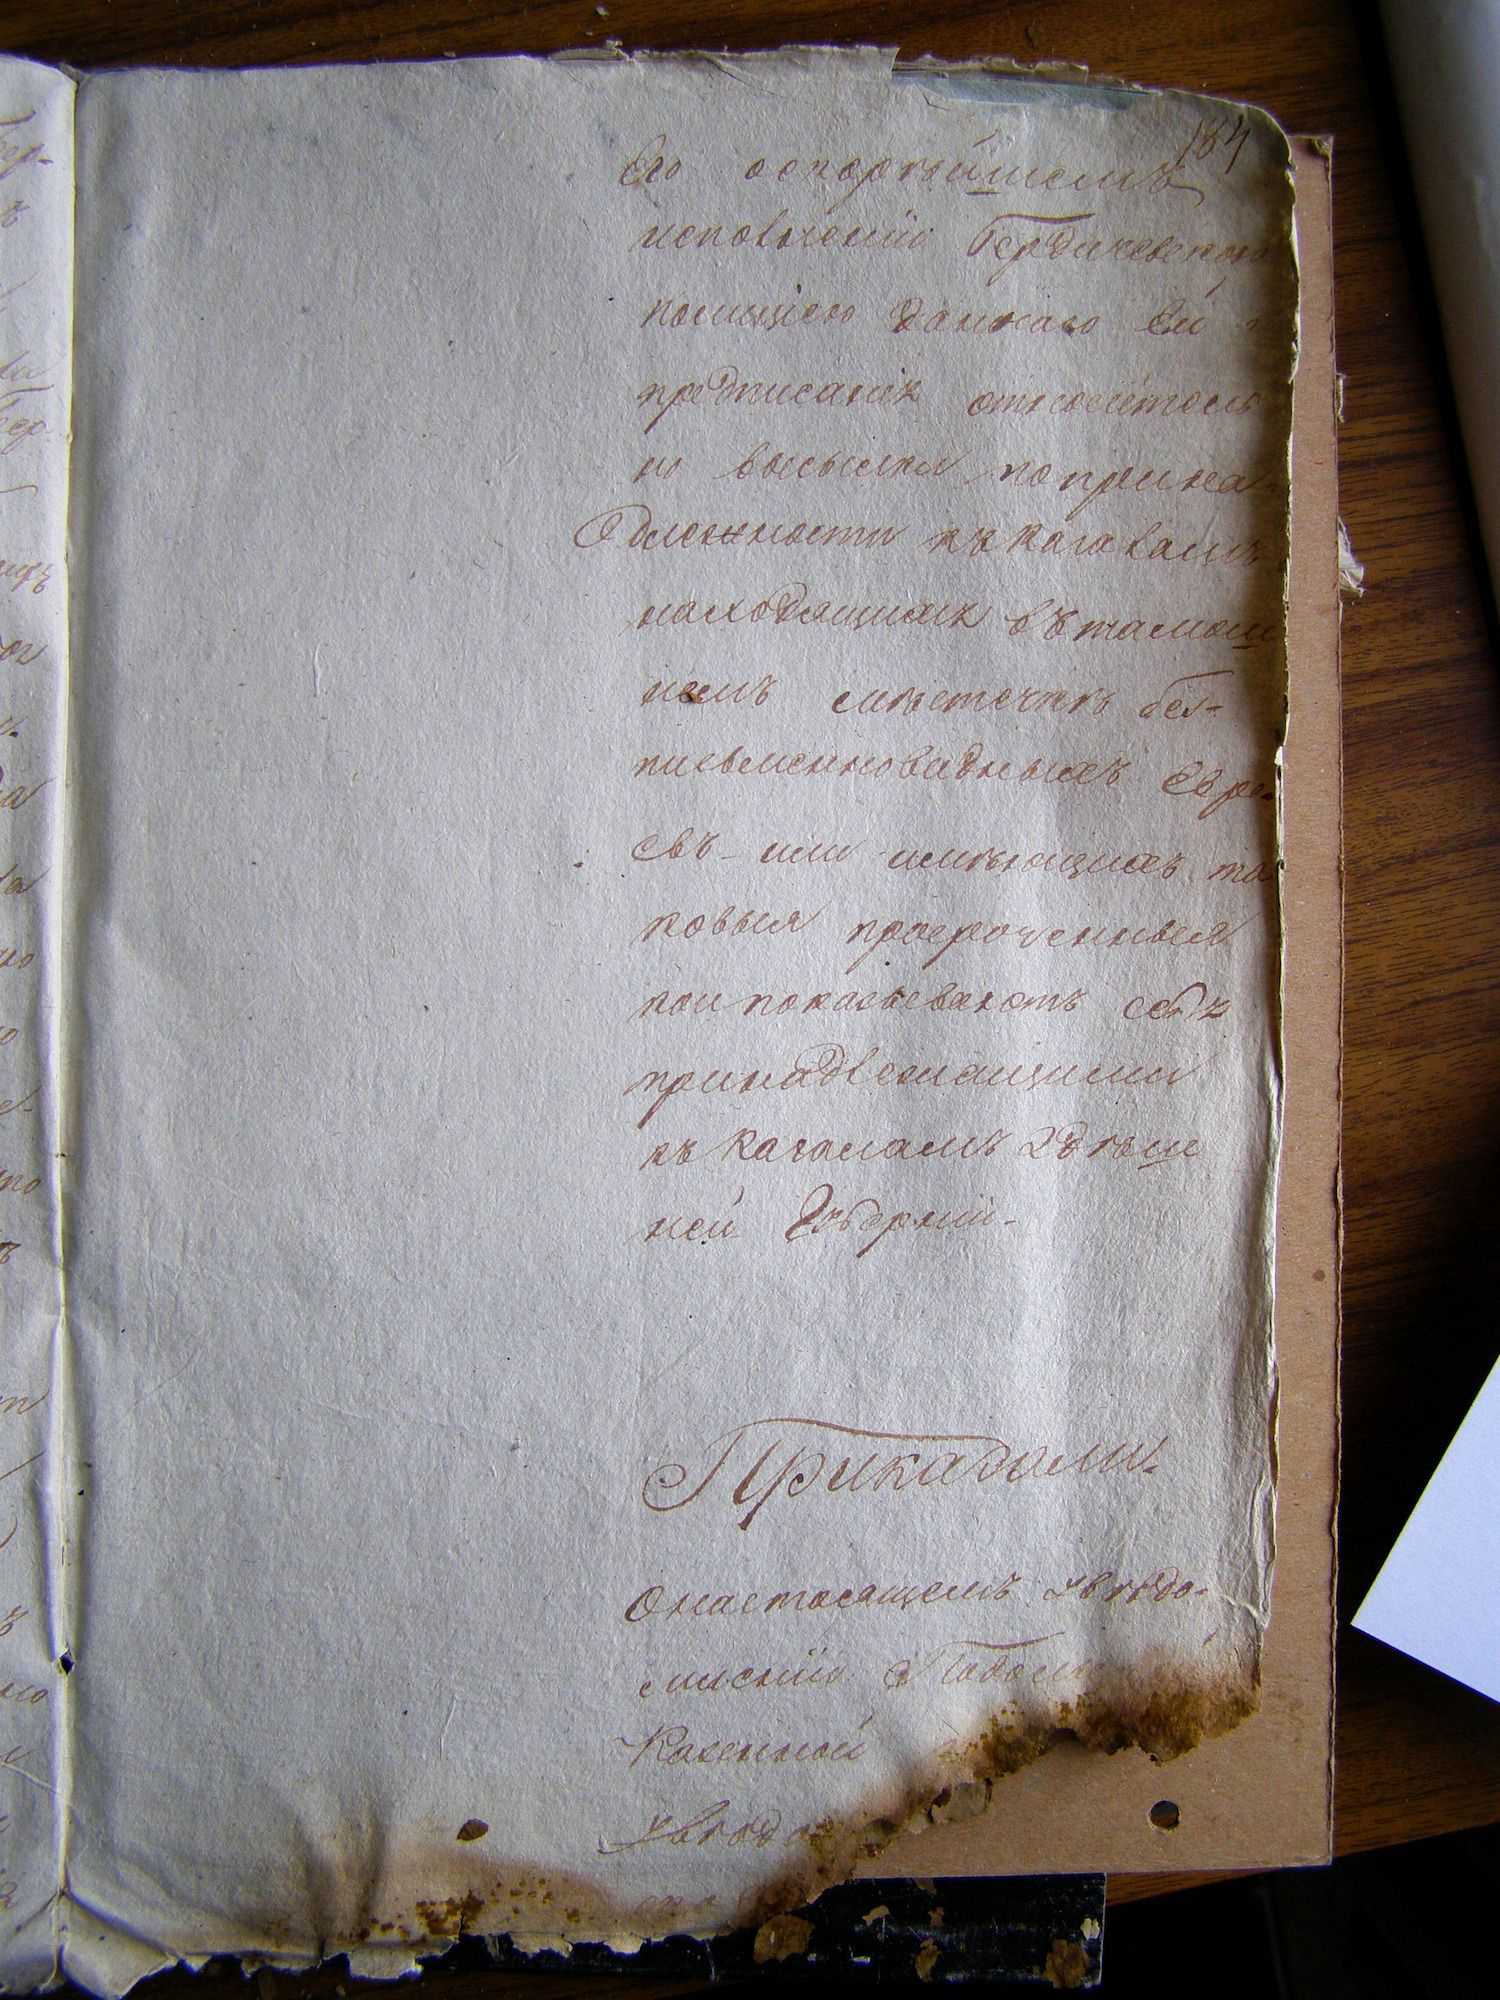 184
Его оскорѣйшемъ
исполненіи Бердичевскою
полиціею даннаго Ей
предписанія относитель
но высылки по прина
длежности къ кагаламъ
находящихся въ тамош
немъ мѣстечкѣ без-
письменновидныхъ Евре-
евъ или имѣющихъ та
ковыя просроченныя
кои показываютъ себя
принадлежащими
къ Кагаламъ здѣш
ней Губерніи.
Приказали.
О настоящемъ увѣдо-
мленіи Подоль
Казенной
увѣдо